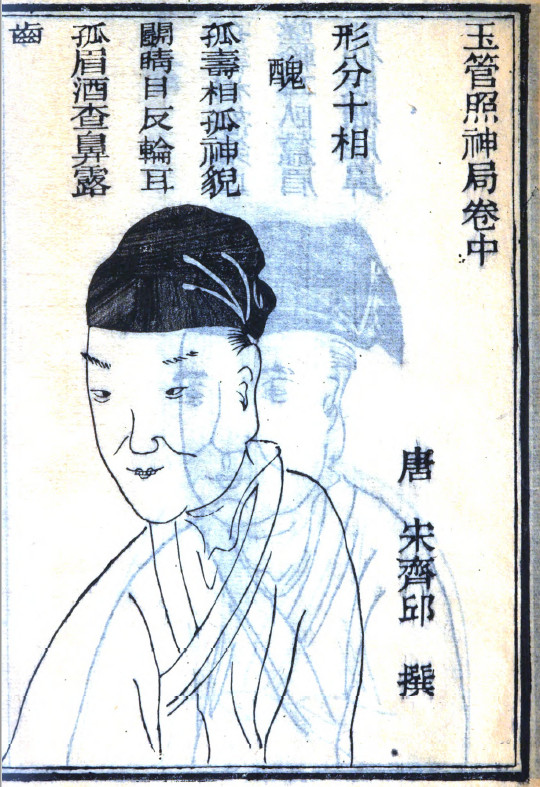 玉管照神局卷中
唐 宋齊邱 撰
形分十相
醜
孤壽相孤神貌
鬭睛目反輪耳
孤眉酒查鼻露
齒